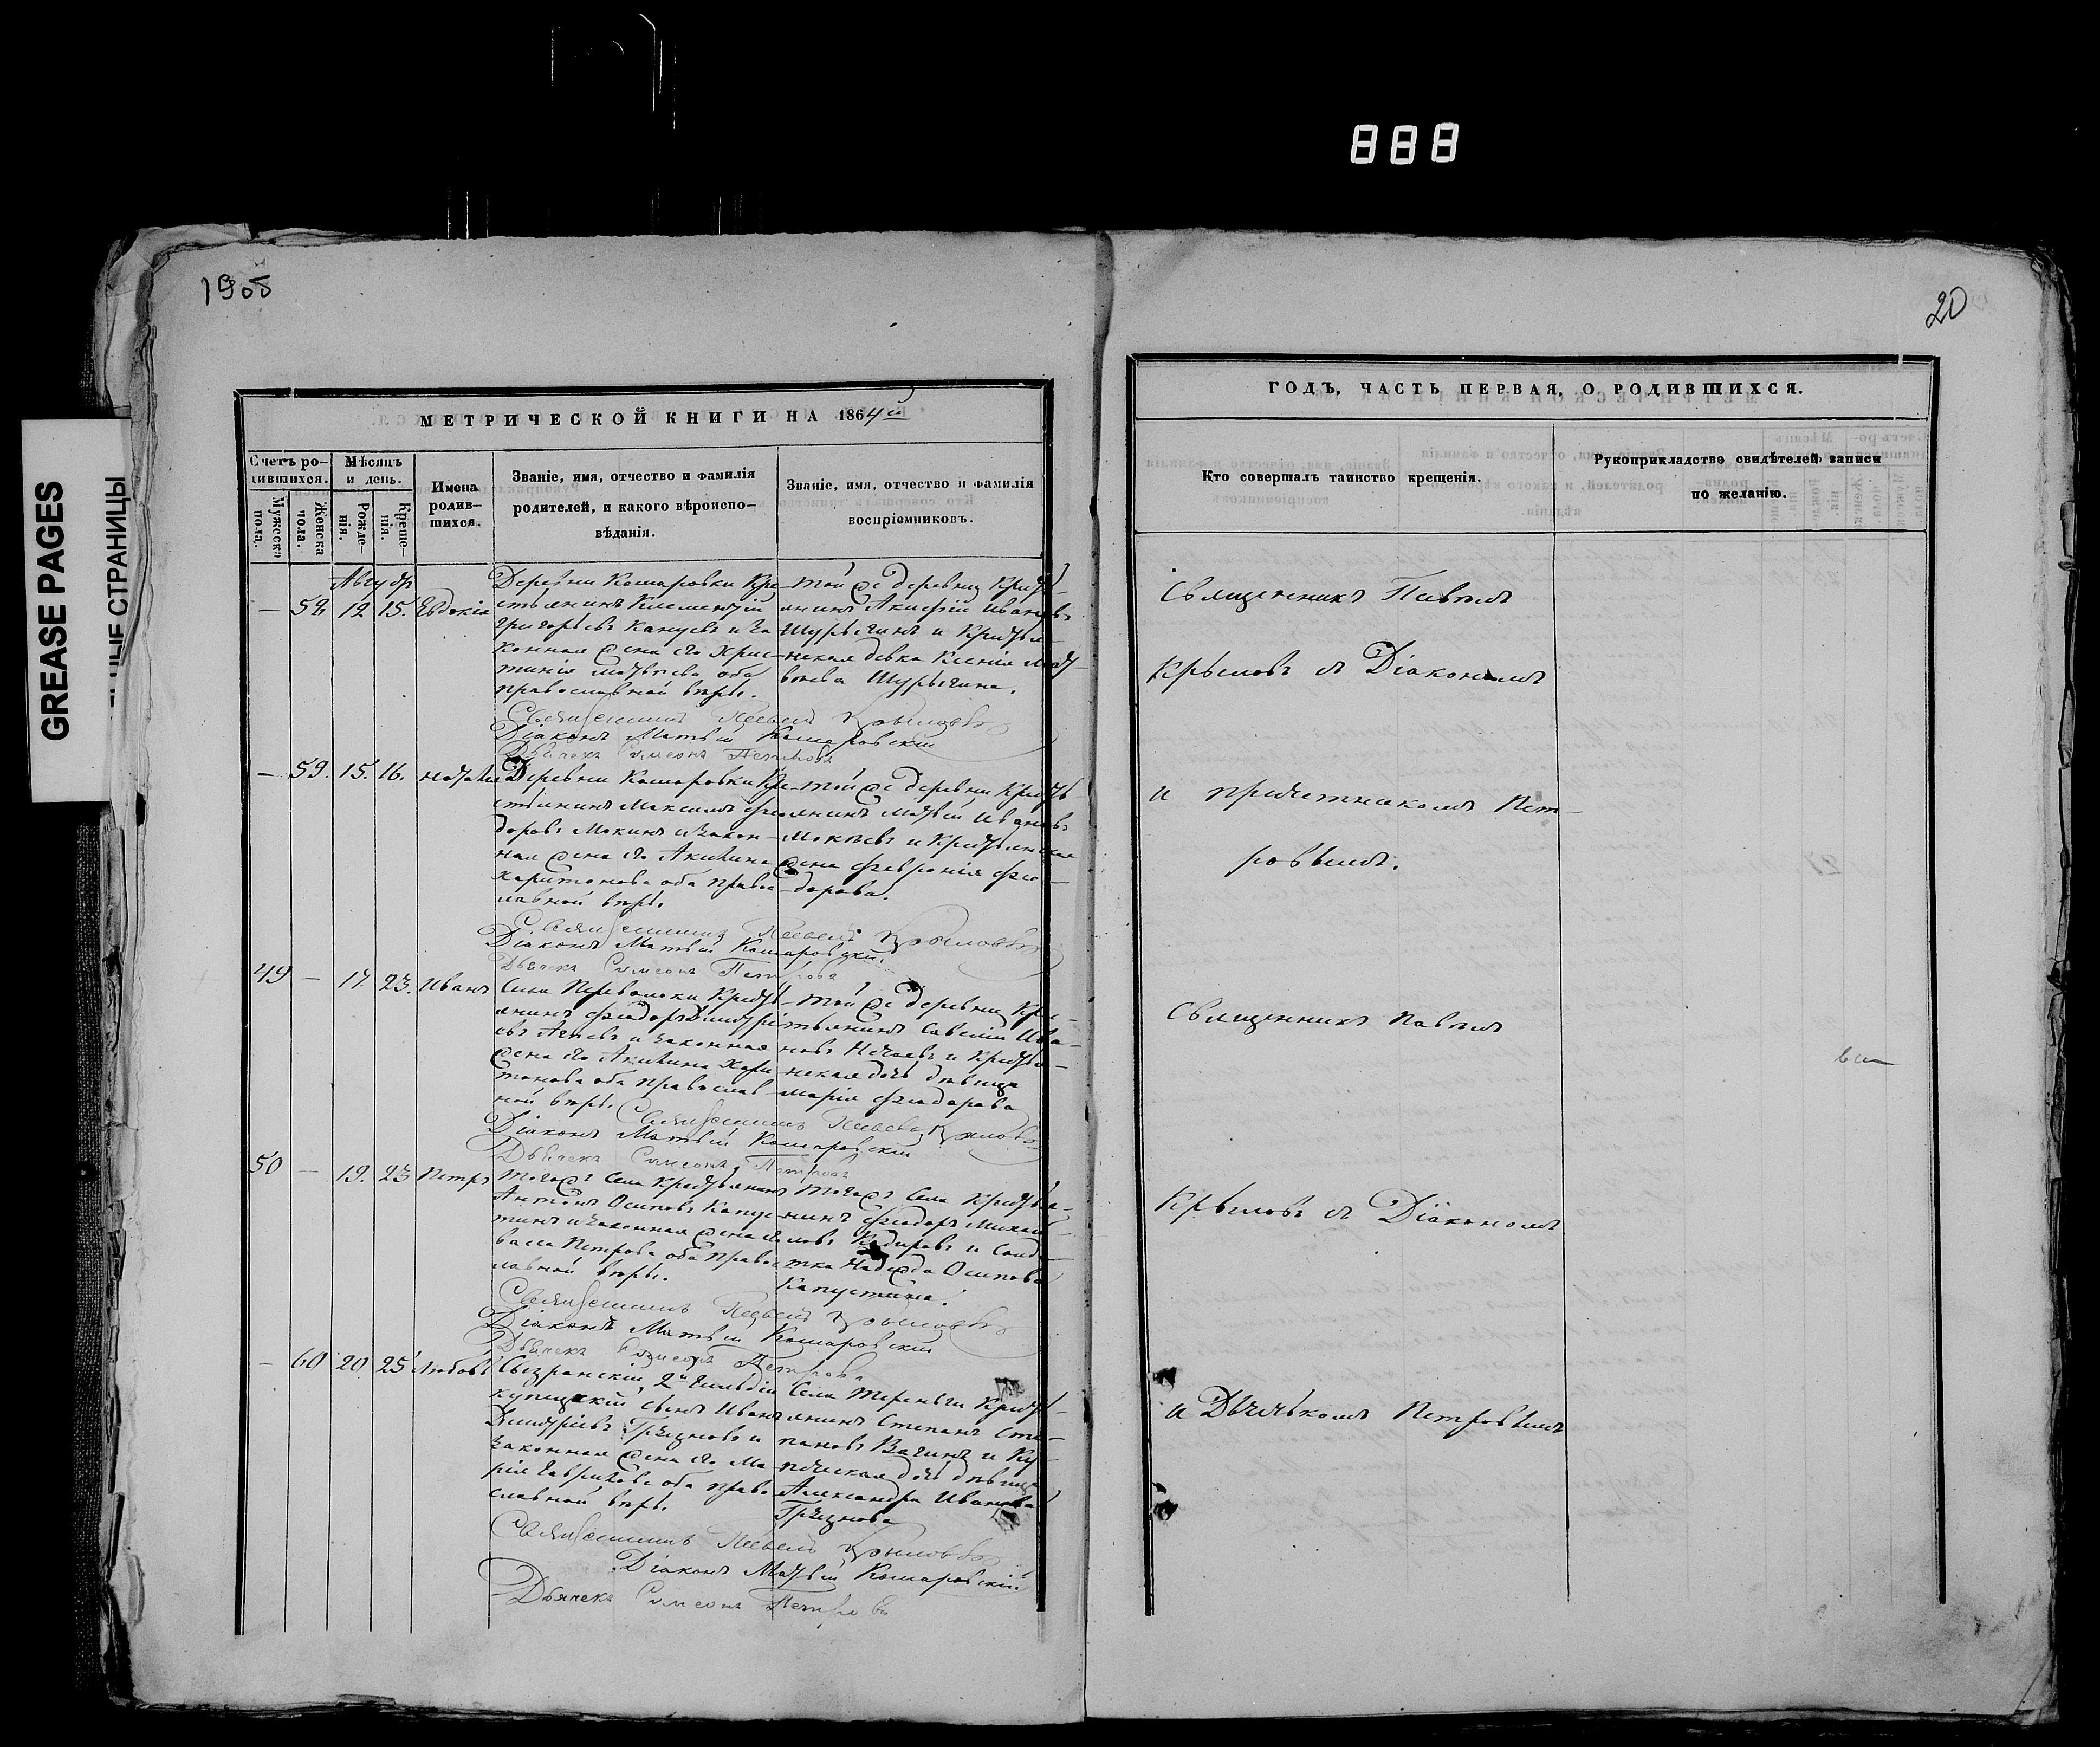 888
1905
20
GREASE PAGES
НЫЕ СТРАНИЦЫ
МЕТРИЧЕСКОЙ КНИГИ НА 1864й
Счетъ ро-
дившихся.
Мужеска
пола.
Женска
пола.
Мѣсяцъ
и день.
Рожде-
нія.
Креще-
нія.
Имена
родив-
шихся.
Званіе, имя, отчество и фамилія
родителей, и какого вѣроиспо-
вѣданія.
Званіе, имя, отчество и фамилія
воспріемниковъ.
Августъ
— 58. 12 15. Евдокія
Деревни Комаровки Кре-
стьянинъ Климентій
Григорьевъ Кануевъ и за-
конная жена его Хрис-
тинія Матвѣева оба
православной вѣры.
той же деревни Кресть-
янинъ Акифій Ивановъ
Шурыгинъ и Крестья-
нская дѣвка Ксенія Мат-
вѣева Шурыгина.
Священникъ Павелъ Крыловъ
Діаконъ Матвѣй Комаровскій
Дьячекъ Симеонъ Петровъ
— 59. 15. 16. Наталія
Деревни Комаровки Кре-
стьянинъ Максимъ Фео-
доровъ Мокинъ и закон-
ная жена его Акилина
Харитонова оба правос-
лавной вѣры.
той же деревни Кресть-
янинъ Матвѣй Ивановъ
Мокѣевъ и Крестьянская
жена Февронія Фео-
дорова.
Священникъ Павелъ Крыловъ
Діаконъ Матвѣй Комаровскій
Дьячекъ Симеонъ Петровъ
49 — 17. 23. Иванъ
Села Переволоки Кресть-
янинъ Феодоръ Дмитріе-
въ Агѣевъ и законная
жена его Акилина Хари-
тонова оба православ-
ной вѣры.
той же деревни Кре-
стьянинъ Савелій Ива-
новъ Нечаевъ и Крестья-
нская дочь дѣвица
Марія Феодорова
Священникъ Павелъ Крыловъ
Діаконъ Матвѣй Комаровскій
Дьячекъ Симеонъ Петровъ
50 — 19. 23 Петръ
Тогожъ Села Крестьянинъ
Антонъ Осиповъ Капус-
тинъ и законная жена его
Васса Петрова оба правос-
лавной вѣры.
Тогожъ Села Крестья-
нинъ Феодоръ Михай-
ловъ и Солд-
тка Надежда Осипова
Капустина.
Священникъ Павелъ Крыловъ
Діаконъ Матвѣй Комаровскій
Дьячекъ Симеонъ Петровъ
— 60 20. 25 Любовь
Сызранскій 2й гильдіи
купецкій сынъ Иванъ
Дмитріевъ Грязновъ и
законная жена его Ма-
рія Гаврилова оба право-
славной вѣры.
Села Тереньги Кресть-
янинъ Степанъ Сте-
пановъ Вагинъ и Ку-
печеская дочь дѣвица
Александра Иванова
Грязнова
Священникъ Павелъ Крыловъ
Діаконъ Матвѣй Комаровскій
Дьячекъ Симеонъ Петровъ
ГОДЪ, ЧАСТЬ ПЕРВАЯ, О РОДИВШИХСЯ.
Кто совершалъ таинство крещенія.
Рукоприкладство свидѣтелей записи
по желанію.
Священникъ Павелъ
Крыловъ съ Діакономъ
и причетникомъ Пет-
ровымъ.
Священникъ Павелъ
Крыловъ съ Діакономъ
и Дьячькомъ Петровымъ